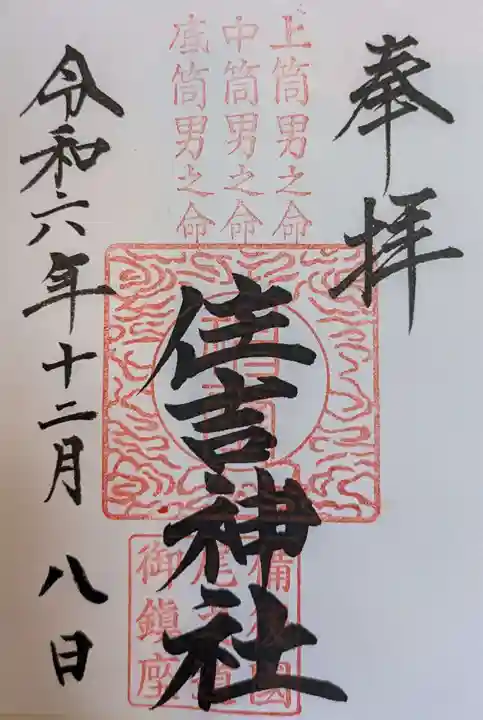 奉拝
上筒男之命
中筒男之命
底筒男之命
住吉神社
備後國
尾道
御鎮座
令和六年十二月八日